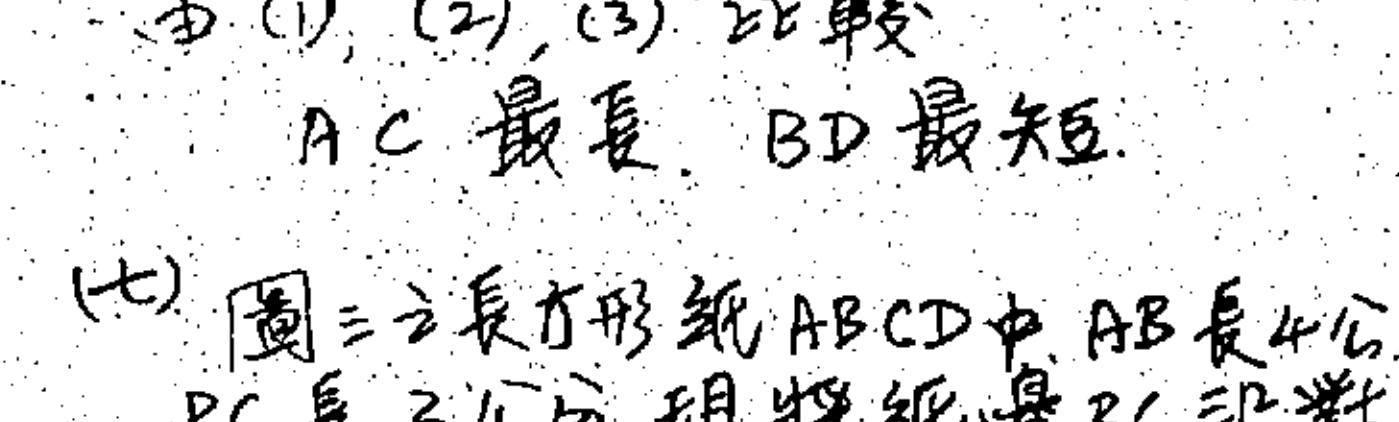 由 (1), (2), (3) 比較
AC 最長. BD 最短.
(七) 圖三之長方形紙 ABCD 中, AB 長 4 公
BC 長 3 公分 現將紙